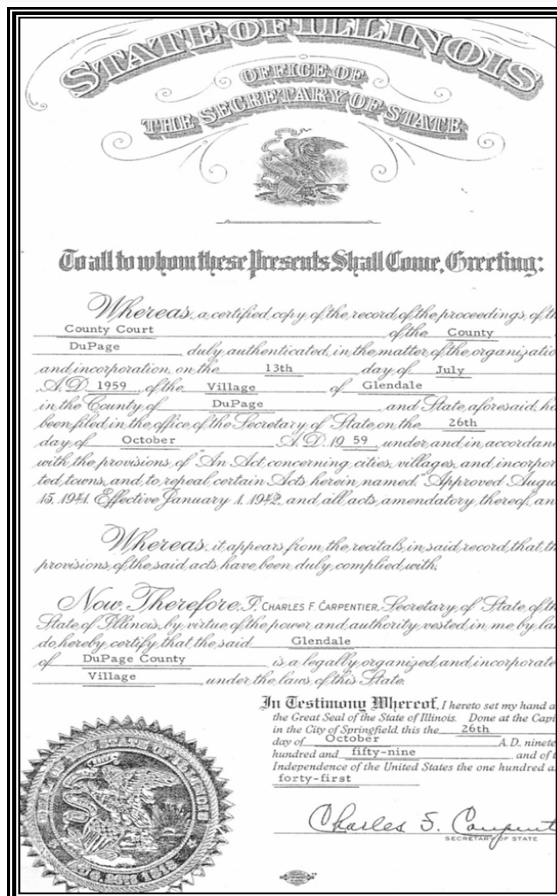 STATE OF ILLINOIS
OFFICE OF
THE SECRETARY OF STATE
To all to whom these Presents Shall Come, Greeting:
Whereas, a certified copy of the record of the proceedings of th
County Court of the County
DuPage duly authenticated, in the matter of the organizatio
and incorporation on the 13th day of July
A.D. 1959 of the Village of Glendale
in the County of DuPage and State aforesaid, ha
been filed in the office of the Secretary of State on the 26th
day of October A.D. 19 59 under and in accordanc
with the provisions of "An Act concerning cities, villages, and incorpor
ted towns, and to repeal certain Acts herein named." Approved Augu
15, 1941. Effective January 1, 1942, and all acts amendatory thereof, an
Whereas, it appears from the recitals in said record that the
provisions of the said acts have been duly complied with,
Now Therefore, I, CHARLES F. CARPENTIER, Secretary of State of the
State of Illinois, by virtue of the power and authority vested in me by la
do hereby certify that the said Glendale
of DuPage County is a legally organized and incorporate
Village under the laws of this State.
In Testimony Whereof, I hereto set my hand a
the Great Seal of the State of Illinois. Done at the Capi
in the City of Springfield this the 26th
day of October A.D. ninete
hundred and fifty-nine and of t
Independence of the United States the one hundred a
forty-first
Charles F. Carpent
SECRETARY OF STATE
OF ILLINOIS
AUG. 26TH 1818